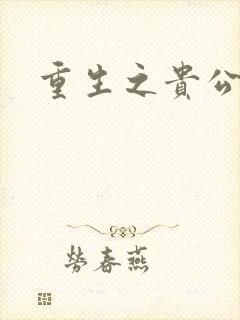 重生之貴公
勞春燕